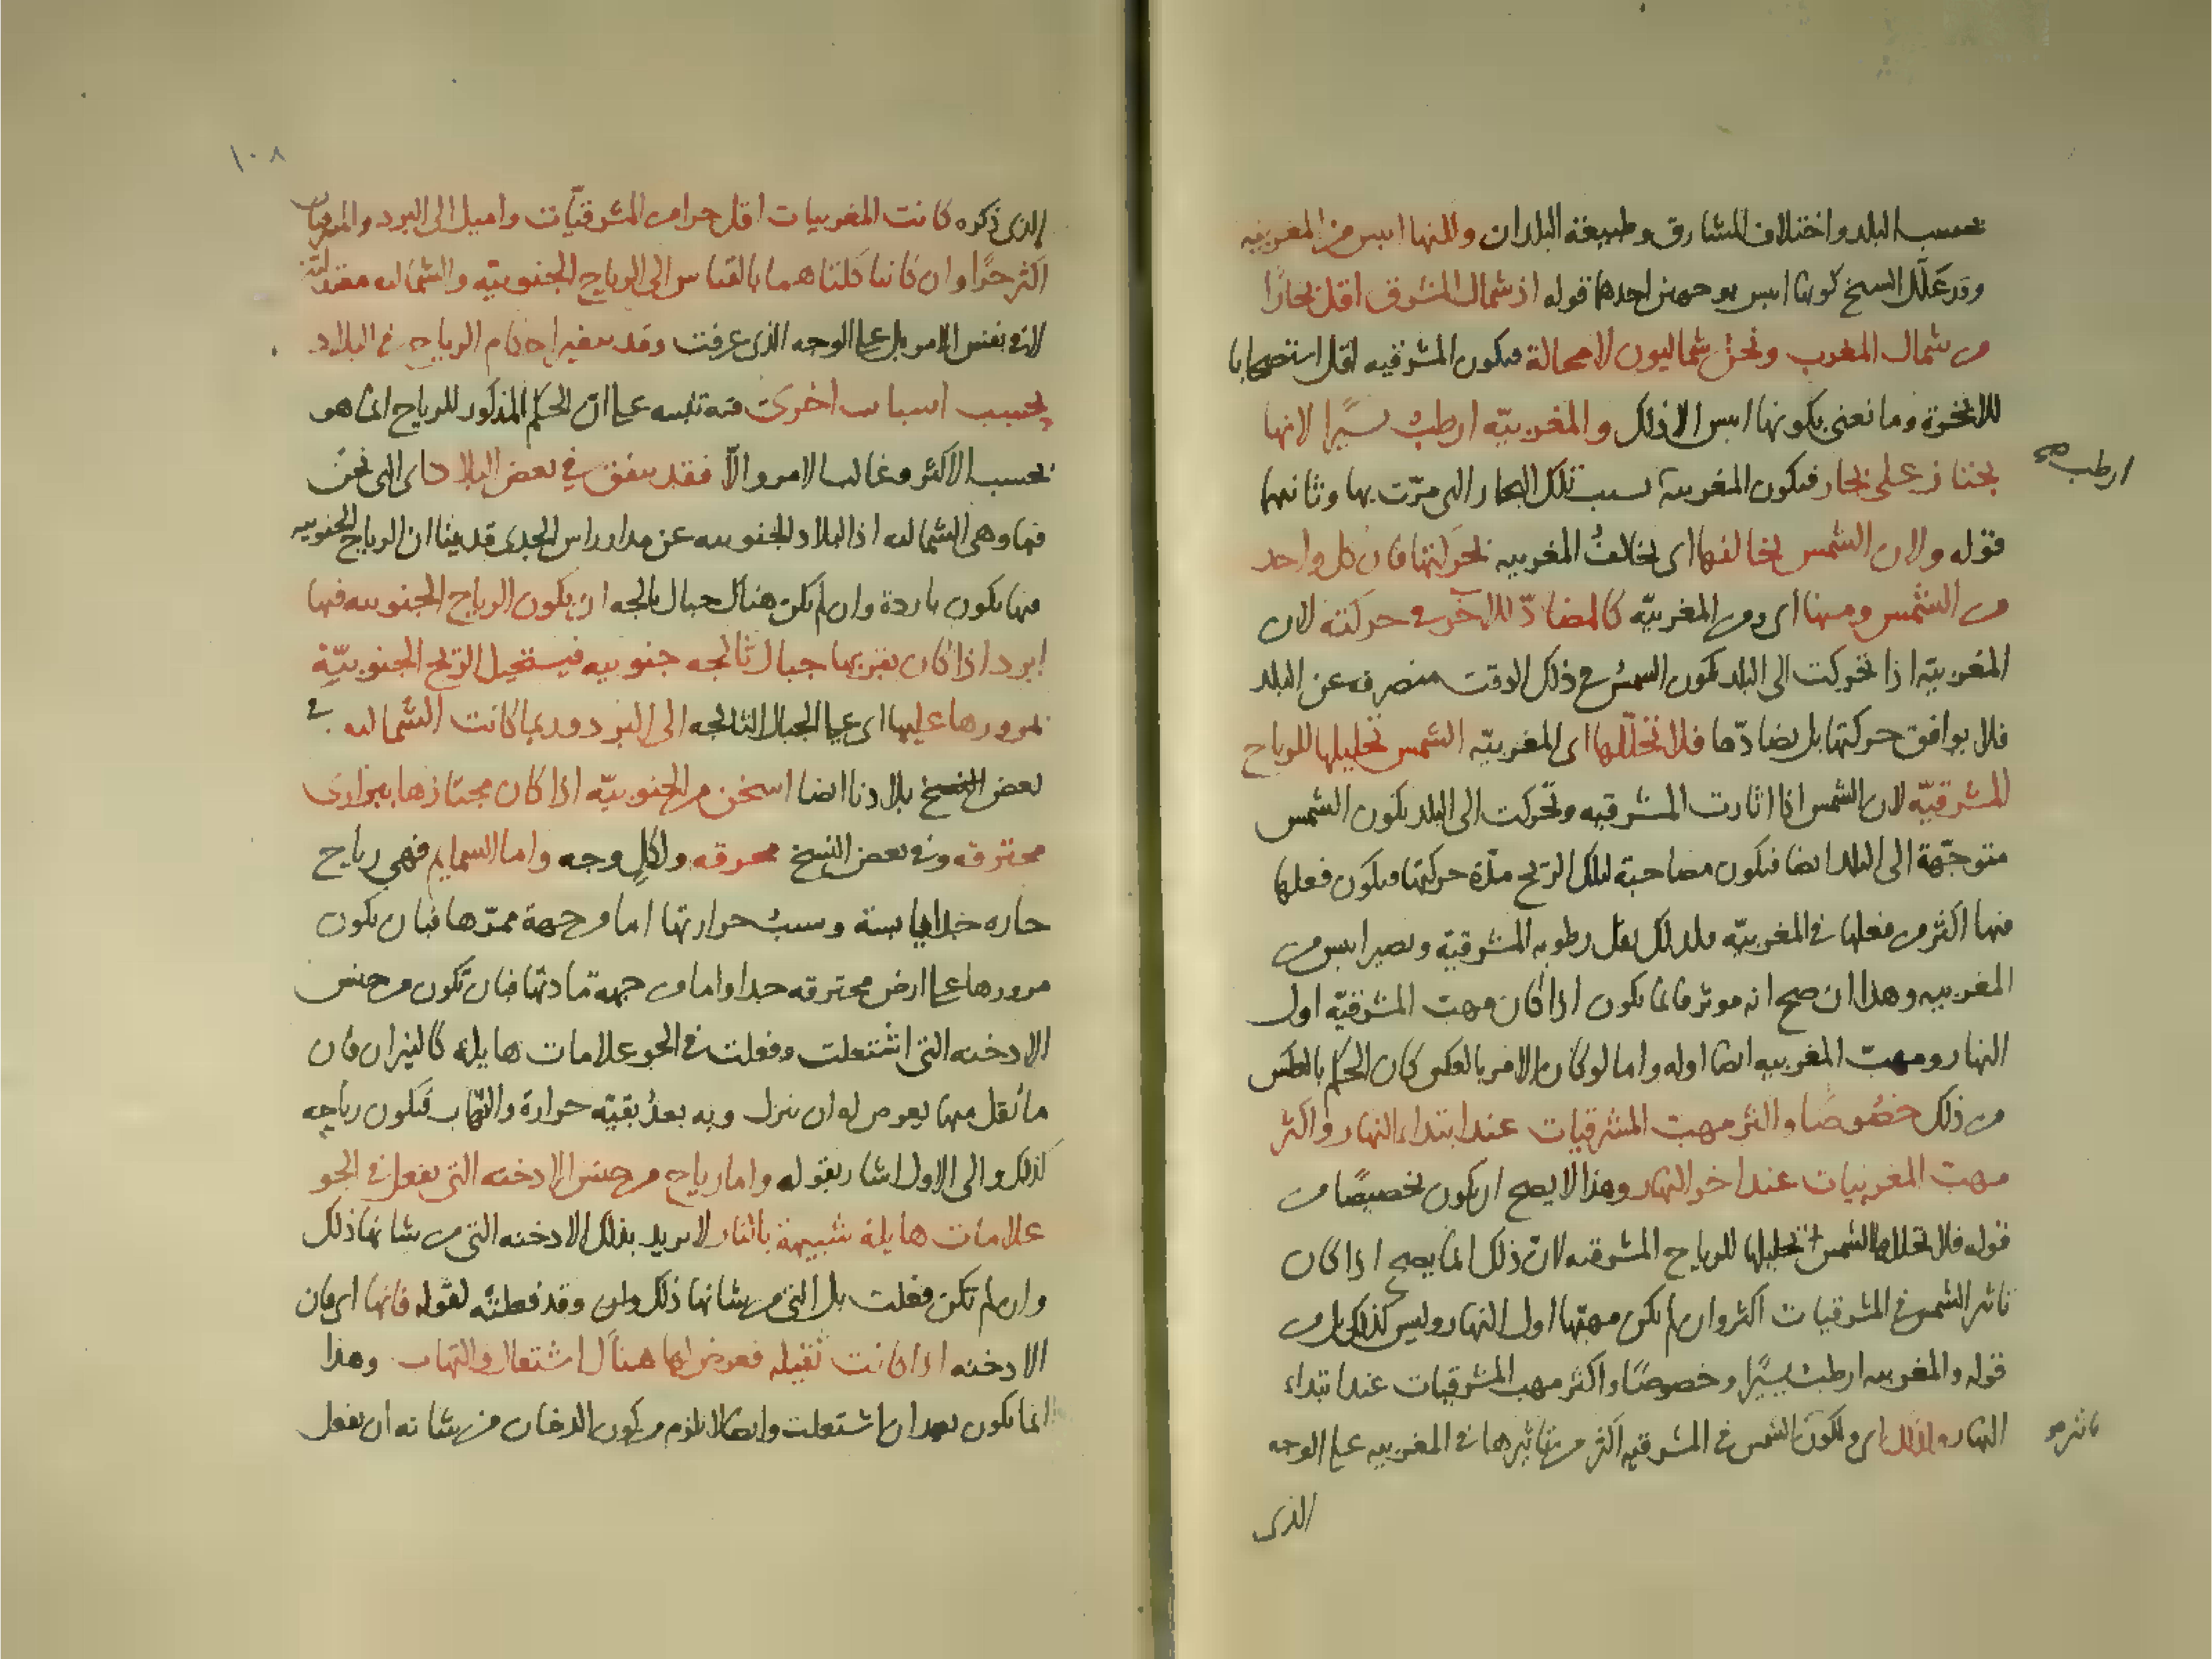 بحسب البلد واختلاف المشارق وطبيعة البلدان ولكنها ايبس من المغربيه
وقد علّل الشيخ كونها ايبس بوجهين احدهما قوله اذ شمال المشرق اقل بحارًا
من شمال المغرب ونحن شماليون لا محالة فيكون المشرقيه اقل استصحابا
للابخرة وما نعني بكونها ايبس الا ذلك والمغربيّه ارطب يسيرًا لانها
يجتاز على بحار فيكون المغربية ارطب بسبب تلك البحار التي مرّت بها وثانيهما
قوله ولان الشمس يخالفها اى يخالف المغربيه بحركتها فان كل واحد
من الشمس ومنها اى ومن المغربيّه كالمضادّ للآخر في حركته لان
المغربيّه اذا تحركت الى البلد تكون الشمس في ذلك الوقت منصرفه عن البلد
فلا يوافق حركتها بل يضادّها فلا تحللها اى المغربيّه الشمس تحليلها للرياح
المشرقيّه لان الشمس اذا اثارت المشرقيه وتحركت الى البلد يكون الشمس
متوجّهة الى البلد ايضا فيكون مصاحبة لتلك الريح مدّة حركتها فيكون فعلها
فيها اكثر من فعلها في المغربيّه فلذلك يقل رطوبه المشرقيّه ويصير ايبس من
المغربيه وهذا ان صح انه موثر فانما يكون اذا كان مهبّ المشرقيّه اول
النهار ومهبّ المغربيه ايضا اوله واما لو كان الامر بالعكس كان الحكم بالعكس
من ذلك خصُوصًا واكثر مهبّ المشرقيات عند ابتداء النهار واكثر
مهبّ المغربيات عند اخر النهار وهذا لا يصح ان يكون تخصيصًا من
قوله فلا تحللها الشمس تحليلها للرياح المشرقيه لان ذلك انما يصح اذا كان
تاثير الشمس في المشرقيات اكثر وان لم يكن مهبّها اول النهار وليس كذلك بل من
قوله والمغربيه ارطب يسيرًا وخصوصًا واكثر مهب المشرقيات عند ابتداء
النهار ولذلك اى ولكون تاثير الشمس في المشرقيه اكثر من تاثيرها في المغربيه على الوجه
الذى
١٠٨
الذى ذكره كانت المغربيات اقل حرا من المشرقيّات واميل الى البرد والمشرقيات
اكثر حرًا وان كانتا كلتاهما بالقياس الى الرياح الجنوبيّه والشماليه معتدلتين
لا في نفس الامر بل على الوجه الذى عرفت وقد يتغير احكام الرياح في البلاد
بحسب اسباب اخرى فيه تنبيه على ان الحكم المذكور للرياح انما هو
بحسب الاكثر وغالب الامر والّا فقد يتفق في بعض البلاد اى التي نحن
فيها وهى الشماليه اذ البلاد الجنوبيه عن مدار راس الجدى قد بيّنا ان الرياح الجنوبيه
فيها يكون باردة وان لم يكن هناك جبال ثالجه ان يكون الرياح الجنوبيه فيها
ابرد اذا كان بقربها جبال ثالجه جنوبيه فيستحيل الريح الجنوبيّة
بمرورها عليها اى على الجبال الثالجه الى البرد وربما كانت الشماليه في
بعض النسخ بلادنا ايضا اسخن من الجنوبيّه اذا كان مجتازها ببرارى
محترقه وفي بعض النسخ محرقه ولكل وجه واما السمايم فهي رياح
حاره جدا يابسة وسبب حرارتها اما من جهة ممرّها فبان يكون
مرورها على ارض محترقه جدا واما من جهة مادتها فبان تكون من جنس
الادخنه التي اشتعلت وفعلت في الجو علامات هايله كالنيران فان
ما ثقل منها يعرض له ان ينزل وبه بعدُ بقيّه حرارة والتهاب فيكون رياحه
كذلك والى الاول اشار بقوله واما رياح من جنس الادخنه التي يفعل في الجو
علامات هايلة شبيهة بالنار لا يريد بذلك الادخنه التي من شانها ذلك
وان لم تكن فعلت بل التي من شانها ذلك وقد فعلته لقوله فانها اى فان
الادخنه اذا كانت ثقيله فعرض لها هناك اشتعال والتهاب وهذا
انما يكون بعد ان اشتعلت وايضا لا يلزم من كون الدخان من شانه ان يفعل